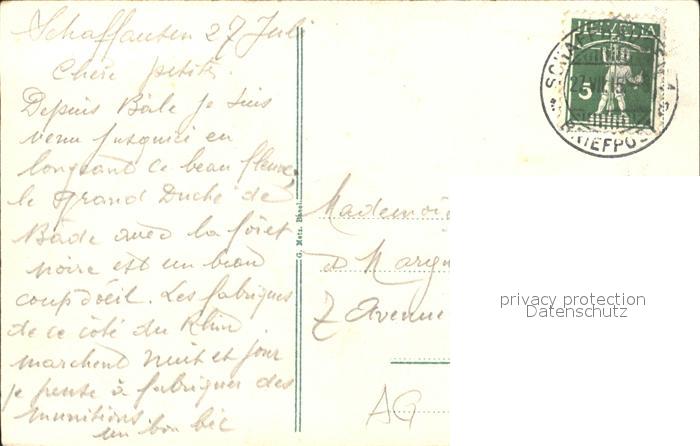 Schaffausen 27 Juli
Chère petite
Depuis Bâle je suis
venu jusqu'ici en
longeant ce beau fleuve,
le grand Duché de
Bade avec la forêt
noire est un beau
coup d'œil. Les fabriques
de ce côté du Rhin
marchent nuit et jour
je pense à fabriquer des
munitions
un bon bic
G. Metz, Basel.
HELVETIA
5
BRIEFPO
Mademoi
7 Avenue
AG
privacy protection
Datenschutz